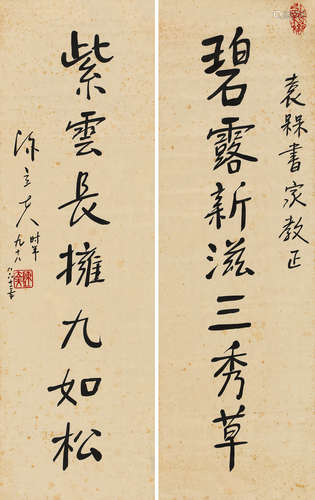 袁槑書家教正
碧露新滋三秀草
紫雲長擁九如松
陳立夫
时年九十八